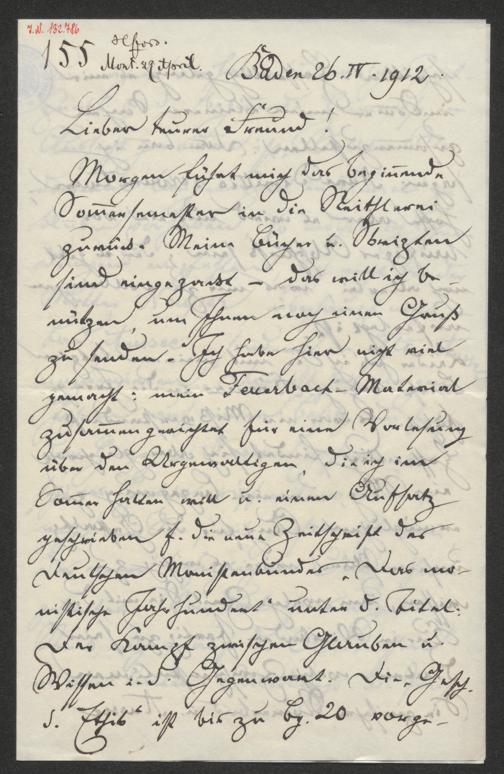 I.N. 132.786
155
Mont. 29 April.
Baden 26. IV. 1912.
Lieber teurer Freund!
Morgen führt mich das beginnende
Sommersemester in die
zurück. Meine Bücher u. Skripten
sind eingepackt – das will ich be-
nützen, um Ihnen noch einen Gruß
zu senden. Ich habe hier nicht viel
gemacht: mein Feuerbach-Material
zusammengerichtet für eine Vorlesung
über den Urgewaltigen, die ich im
Sommer halten will u. einen Aufsatz
geschrieben f. die neue Zeitschrift des
Deutschen Monistenbundes „Das mo-
nistische Jahrhundert“ unter d. Titel:
Der Kampf zwischen Glauben u.
Wissen i. d. Gegenwart. Die „Gesch.
d. Ethik“ ist bis zu Bg. 20 vorge-